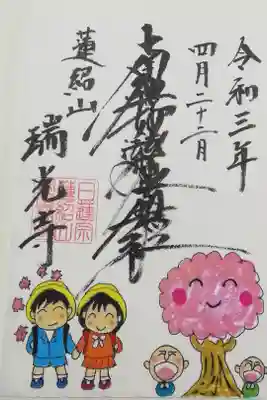 令和三年
四月二十二日
南無妙法蓮華経
蓮紹山
瑞光寺
日蓮宗
蓮紹山